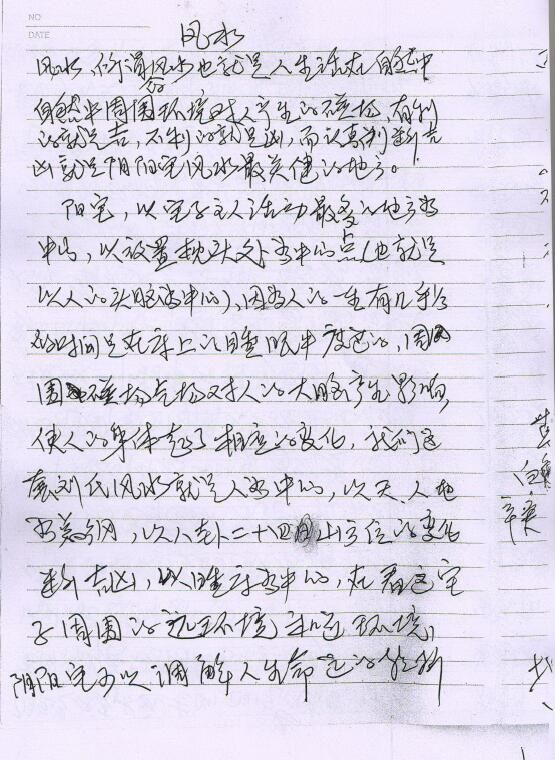 NO
DATE
风水
风水,所谓风水也就是人生活在自然中
自然界周围环境对人产生的磁场,有利
的就是吉,不利的就是凶,而认真判断吉
凶就是阴阳宅风水最关健的地方。
阳宅,以宅子主人活动最多的地方为
中心,以放置枕头处为中心点(也就是
以人的头脑为中心),因为人的一生有几乎
的时间是在床上的睡眠中度过的,周
围磁场气场对人的大脑产生影响,
使人的身体起了相应的变化,我们
刘氏风水就是人为中心,以天、人地
为,以八卦二十四山方位的变化
断吉凶,以睡床为中心,在看这宅
子周围的远环境和近环境,
阴阳宅可以调解人生命运的
辛庚